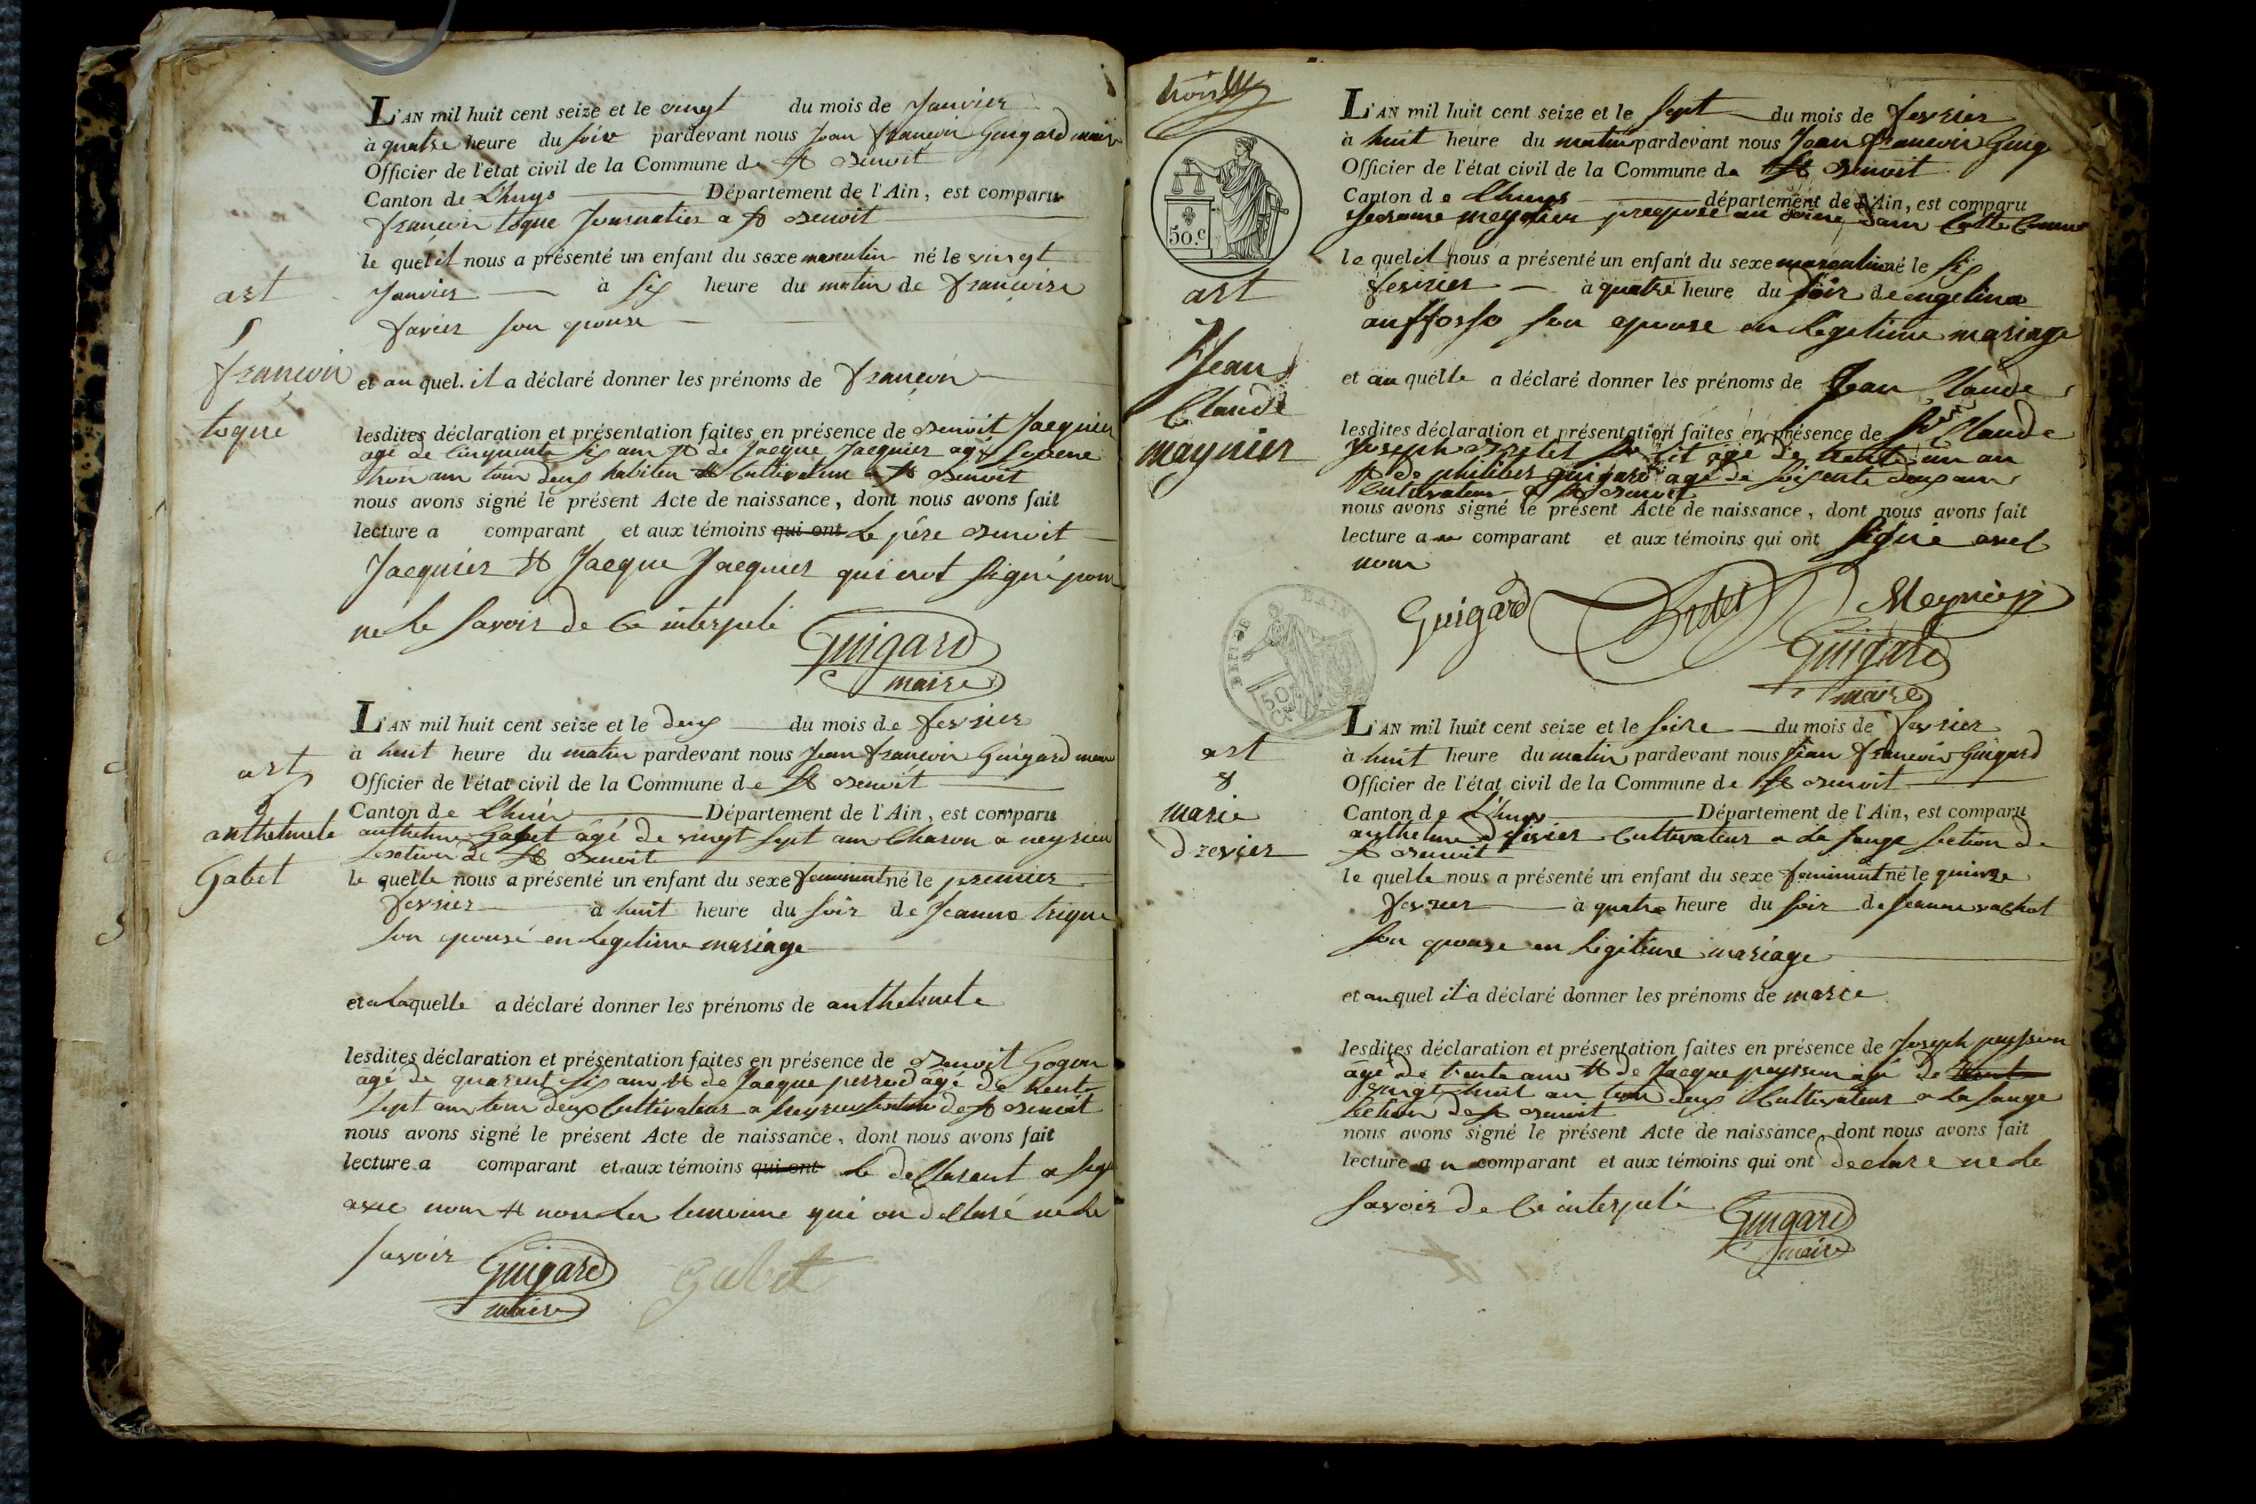 L'AN mil huit cent seize et le vingt du mois de Janvier
à quatre heure du soire pardevant nous Jean françoir Guigard maire
Officier de l'état civil de la Commune de St Benoit
Canton de Lhuys Département de l'Ain, est comparu
françoir toque Journalier a St Benoit
le quel il nous a présenté un enfant du sexe masculin né le vingt
art
Janvier à six heure du matin de françoise
favier son epouse
françoir
et au quel il a déclaré donner les prénoms de françoir
toque
lesdites déclaration et présentation faites en présence de Benoit Jacquier
agé de cinquante six ans et de Jacque Jacquier agé
nous avons signé le présent Acte de naissance, dont nous avons fait
lecture a comparant et aux témoins qui ont le père Benoit
Jacquier et Jacque Jacquier qui signé pour
ne le savoir de ce interpelé
Guigard
maire
L'AN mil huit cent seize et le deux du mois de fevrier
à huit heure du matin pardevant nous Jean françoir Guigard maire
art
Officier de l'état civil de la Commune de St Benoit
Canton de Lhuis Département de l'Ain, est comparu
anthelmete
anthelme Gabet âgé de vingt sept ans Charon a neyrieu
section de St Benoit
Gabet
le quelle nous a présenté un enfant du sexe feminint né le premier
fevrier à huit heure du soir de Jeanne trique
son epouse en legetime mariage
et a laquelle a déclaré donner les prénoms de anthelmete
lesdites déclaration et présentation faites en présence de Benoit Gogon
agé de quarent six ans et de Jacque perrod âgé de trente
sept an tous deux Cultivateur a de St Benoit
nous avons signé le présent Acte de naissance, dont nous avons fait
lecture a comparant et aux témoins qui ont le declarent a
avec nous et non les temoins qui on declaré ne le
savoir
Guigard
maire
Gabet
trois
L'AN mil huit cent seize et le sept du mois de fevrier
à huit heure du matin pardevant nous Jean francoir Guig
Officier de l'état civil de la Commune de St Benoit
Canton de Lhuys département de l'Ain, est comparu
50.c
Jerome meynier preposé au dans cette Comune
le quel il nous a présenté un enfant du sexe masculin né le six
art
fevrier à quatre heure du soir de angelina
7
son epouse en legetime mariage
Jean
et au quelle a déclaré donner les prénoms de Jean Claude
Claude
maynier
lesdites déclaration et présentation faites en présence de Claude
Joseph agé de trente un an
et de philiber guigard agé de soisente deux ans
Cultivateur a St Benoit
nous avons signé le présent Acte de naissance, dont nous avons fait
lecture a comparant et aux témoins qui ont signé avec
nous
Guigard
Meynier
Guigard
maire
50
L'AN mil huit cent seize et le seize du mois de fevrier
art
à huit heure du matin pardevant nous Jean francoir Guigard
8
Officier de l'état civil de la Commune de St Benoit
marie
Canton de Lhuys Département de l'Ain, est comparu
anthelme Cultivateur a la sauge section de
drevier
St Benoit
le quelle nous a présenté un enfant du sexe feminint né le quinze
fevrier à quatre heure du soir de Jeanne vachot
son epouse en legitime mariage
et au quel il a déclaré donner les prénoms de marie
lesdites déclaration et présentation faites en présence de Joseph peysson
agé de trente ans et de Jacque peysson agé de
vingt huit an tous deux Cultivateur a la sauge
section de St Benoit
nous avons signé le présent Acte de naissance, dont nous avons fait
lecture a comparant et aux témoins qui ont declare ne le
savoir de ce interpelé
Guigard
maire